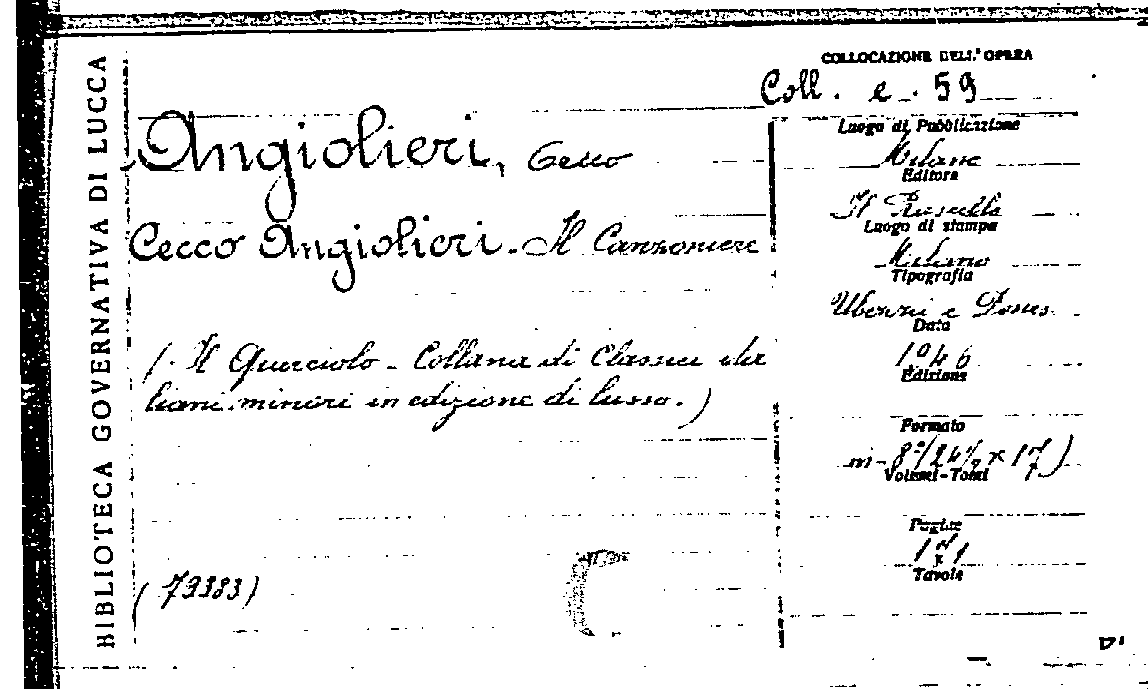 BIBLIOTECA GOVERNATIVA DI LUCCA
COLLOCAZIONE DELL'OPERA
Coll. e. 59
Angiolieri, Cecco
Cecco Angiolieri. Il Canzoniere
(. Il Querciolo - Collana di Classici ita
liani minori in edizione di lusso.)
(79383)
Luogo di Pubblicazione
Milano
Editore
Il
Luogo di stampa
Milano
Tipografia
e
Data
1946
Edizione
Formato
in-8°(24½ x 17)
Volumi-Tomi
Pagine
171
Tavole